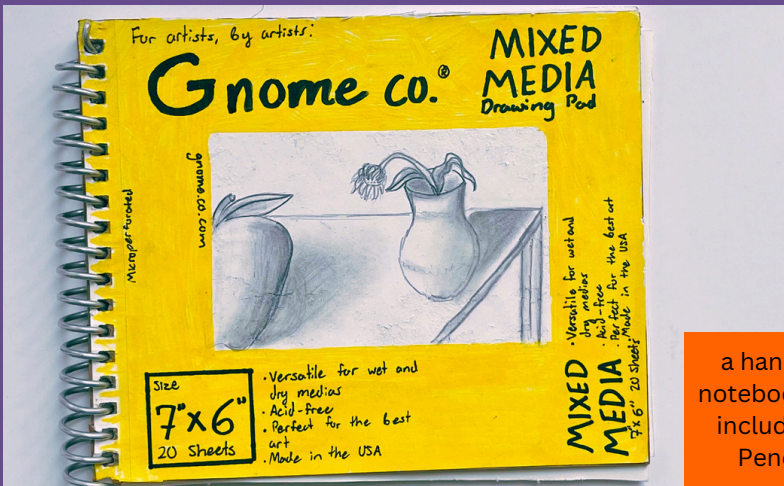 For artists, by artists:
Gnome co.®
MIXED
MEDIA
Drawing Pad
gnome.co.com
Microperforated
Size
7"x6"
20 Sheets
·Versatile for wet and
dry medias
·Acid-free
·Perfect for the best
art
·Made in the USA
MIXED
MEDIA
7"x6" 20 sheets
·Versatile for wet and
dry medias
·Acid-free
·Perfect for the best art
·Made in the USA
a han
noteboo
includ
Pen